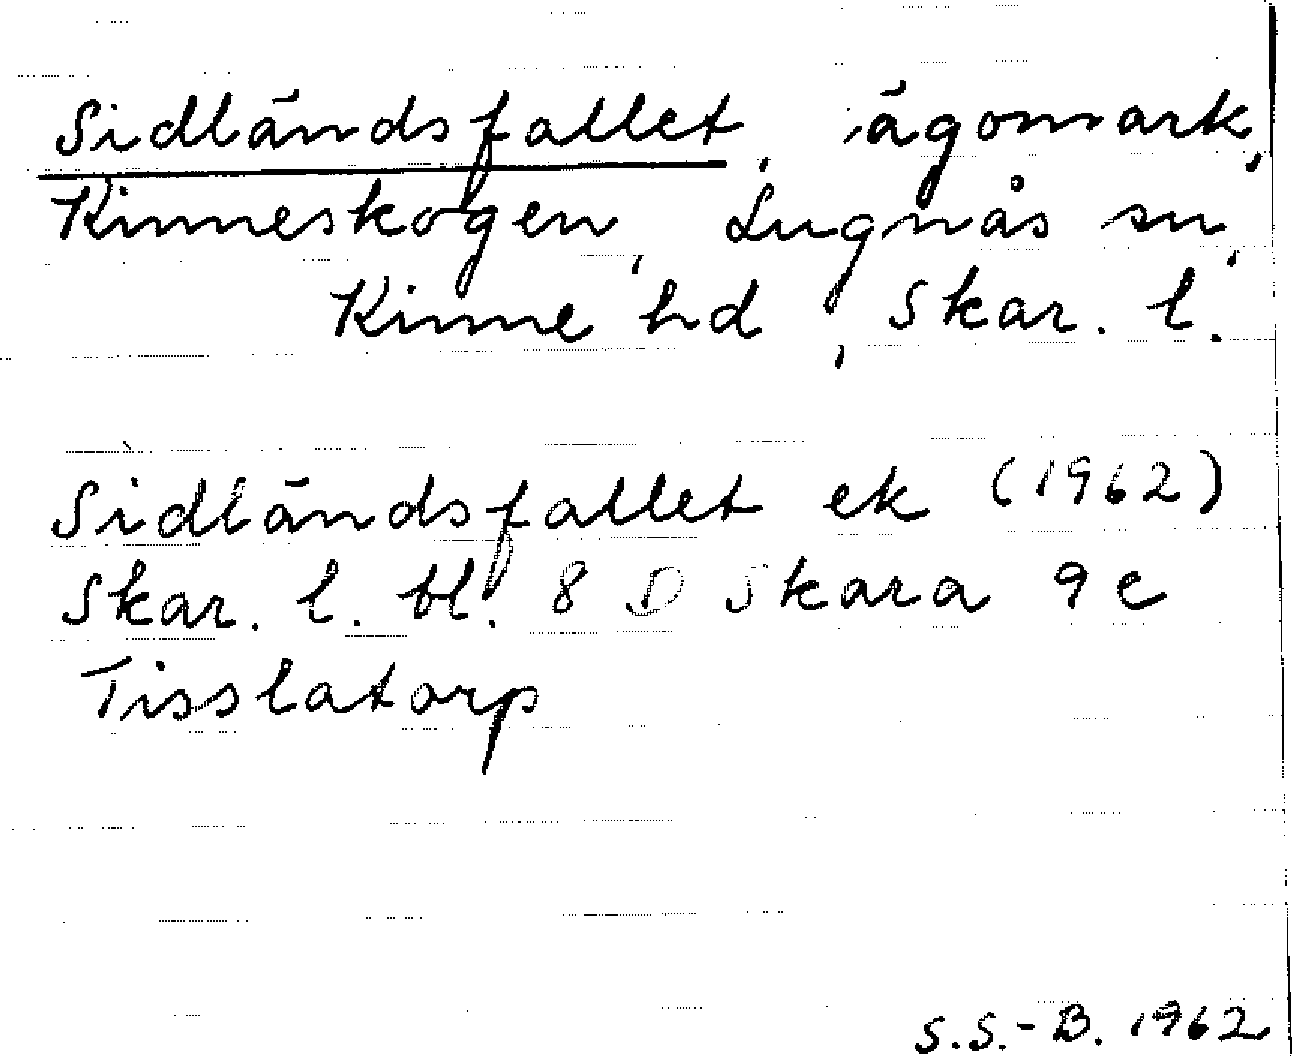 Sidländsfallet, ägomark,
Kinneskogen, Lugnås sn,
Kinne hd, Skar. l.
Sidländsfallet ek (1962)
Skar. l. bl. 8 D Skara 9 c
Tisslatorp
S.S.-B. 1962